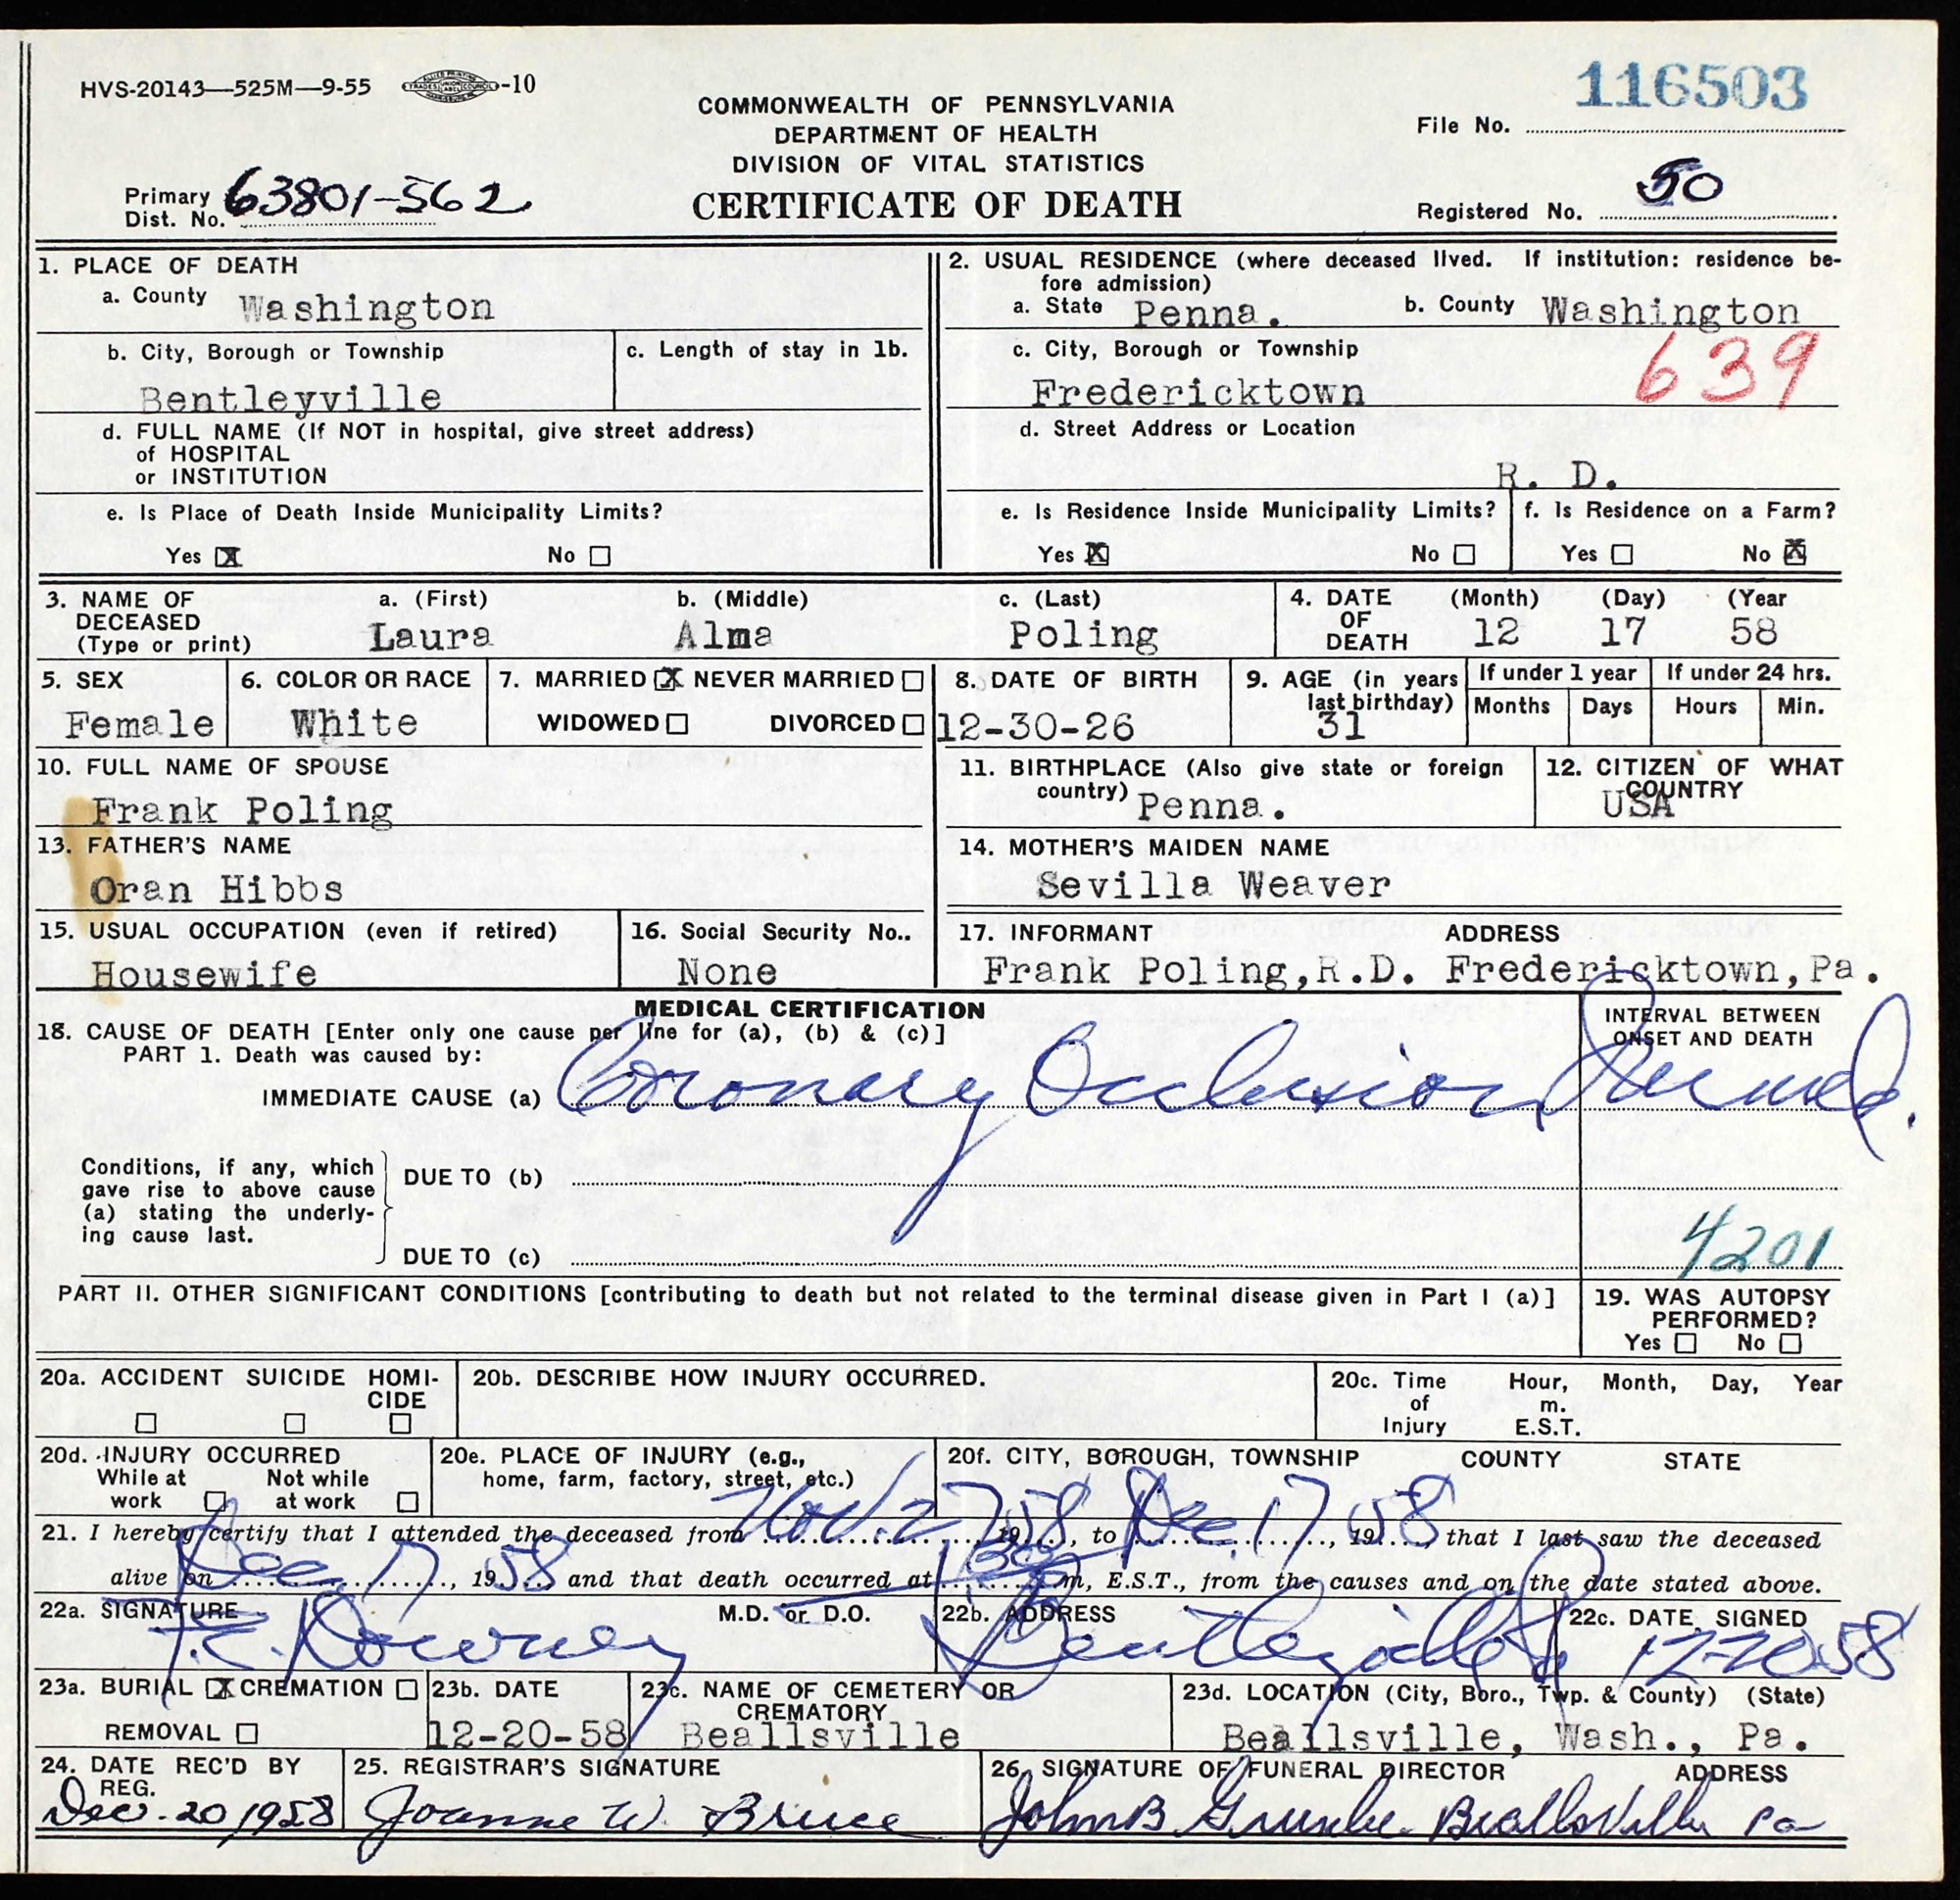 HVS-20143—525M—9-55 -10
116503
COMMONWEALTH OF PENNSYLVANIA
DEPARTMENT OF HEALTH
DIVISION OF VITAL STATISTICS
CERTIFICATE OF DEATH
File No.
Primary
Dist. No. 63801-562
Registered No. 50
1. PLACE OF DEATH
a. County Washington
2. USUAL RESIDENCE (where deceased lived. If institution: residence be-
fore admission)
a. State Penna. b. County Washington
b. City, Borough or Township
Bentleyville
c. Length of stay in 1b.
c. City, Borough or Township
Fredericktown
639
d. FULL NAME (If NOT in hospital, give street address)
of HOSPITAL
or INSTITUTION
d. Street Address or Location
R. D.
e. Is Place of Death Inside Municipality Limits?
Yes X No
e. Is Residence Inside Municipality Limits?
Yes X No
f. Is Residence on a Farm?
Yes No X
3. NAME OF
DECEASED
(Type or print)
a. (First) b. (Middle) c. (Last)
Laura Alma Poling
4. DATE
OF
DEATH
(Month) (Day) (Year
12 17 58
5. SEX
Female
6. COLOR OR RACE
White
7. MARRIED X NEVER MARRIED
WIDOWED DIVORCED
8. DATE OF BIRTH
12-30-26
9. AGE (in years
last birthday)
31
If under 1 year
Months Days
If under 24 hrs.
Hours Min.
10. FULL NAME OF SPOUSE
Frank Poling
11. BIRTHPLACE (Also give state or foreign
country) Penna.
12. CITIZEN OF WHAT
COUNTRY
USA
13. FATHER'S NAME
Oran Hibbs
14. MOTHER'S MAIDEN NAME
Sevilla Weaver
15. USUAL OCCUPATION (even if retired)
Housewife
16. Social Security No..
None
17. INFORMANT ADDRESS
Frank Poling,R.D. Fredericktown,Pa.
MEDICAL CERTIFICATION
18. CAUSE OF DEATH [Enter only one cause per line for (a), (b) & (c)]
PART 1. Death was caused by:
IMMEDIATE CAUSE (a) Coronary Occlusion
INTERVAL BETWEEN
ONSET AND DEATH
Conditions, if any, which
gave rise to above cause
(a) stating the underly-
ing cause last.
DUE TO (b)
DUE TO (c)
4201
PART II. OTHER SIGNIFICANT CONDITIONS [contributing to death but not related to the terminal disease given in Part I (a)]
19. WAS AUTOPSY
PERFORMED?
Yes No
20a. ACCIDENT SUICIDE HOMI-
CIDE
20b. DESCRIBE HOW INJURY OCCURRED.
20c. Time
of
Injury
Hour, Month, Day, Year
m.
E.S.T.
20d. INJURY OCCURRED
While at
work
Not while
at work
20e. PLACE OF INJURY (e.g.,
home, farm, factory, street, etc.)
20f. CITY, BOROUGH, TOWNSHIP COUNTY STATE
21. I hereby certify that I attended the deceased from Nov. 27, 1958, to Dec. 17, 1958, that I last saw the deceased
alive on Dec. 17, 1958 and that death occurred at m, E.S.T., from the causes and on the date stated above.
22a. SIGNATURE M.D. or D.O.
F.C. Downey
22b. ADDRESS
Bentleyville Pa
22c. DATE SIGNED
12-20-58
23a. BURIAL X CREMATION
REMOVAL
23b. DATE
12-20-58
23c. NAME OF CEMETERY OR
CREMATORY
Beallsville
23d. LOCATION (City, Boro., Twp. & County) (State)
Beallsville, Wash., Pa.
24. DATE REC'D BY
REG.
Dec. 20, 1958
25. REGISTRAR'S SIGNATURE
Joanne W. Bruce
26. SIGNATURE OF FUNERAL DIRECTOR ADDRESS
John B Beallsville Pa